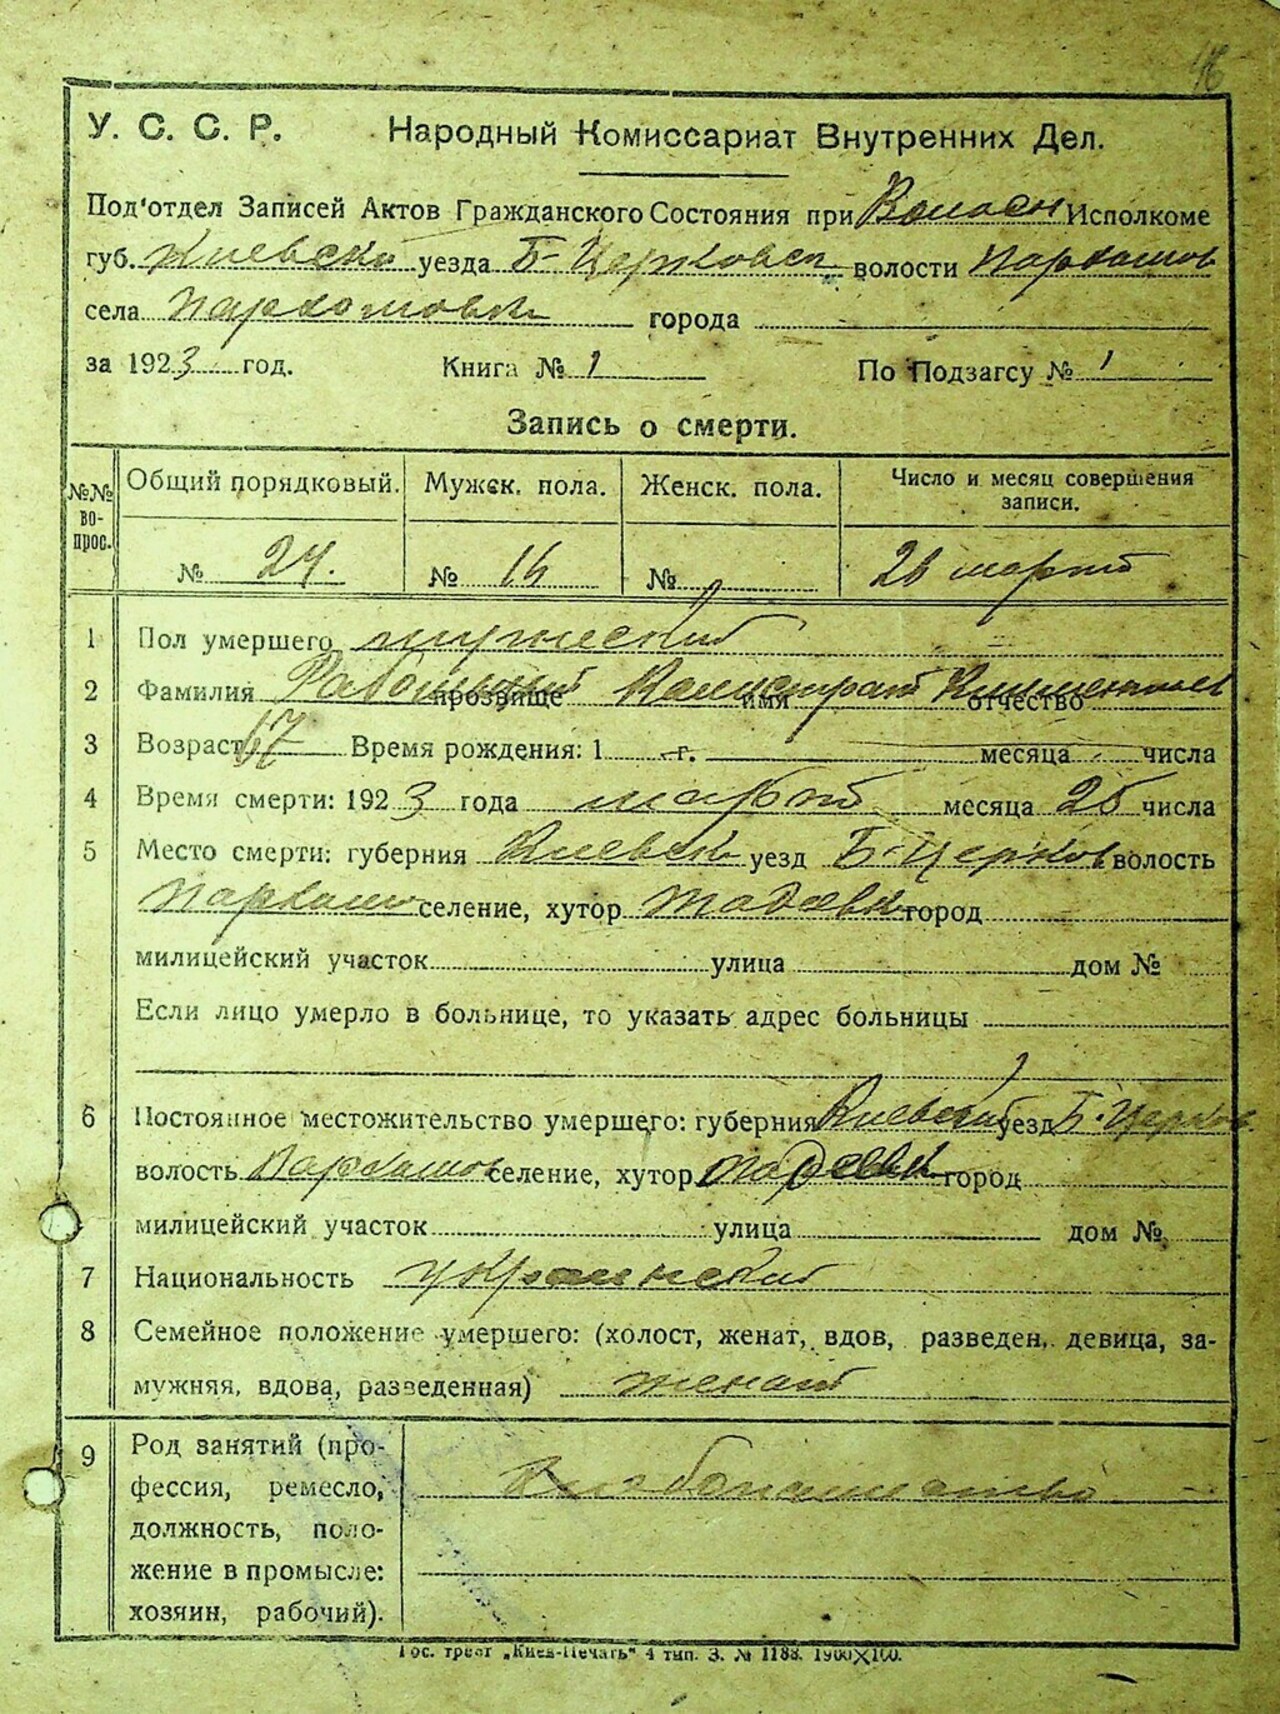 У. С. С. Р. Народный Комиссариат Внутренних Дел.
Под'отдел Записей Актов Гражданского Состояния при Волосн Исполкоме
губ. Киевско уезда Б-Церковск волости Пархомов
села Пархомовки города
за 1923 год. Книга № 1 По Подзагсу № 1
Запись о смерти.
№№ во-прос. Общий порядковый. Мужск. пола. Женск. пола. Число и месяц совершения записи.
№ 24. № 16 № 26 март
1 Пол умершего мужеский
2 Фамилия прозвище Калистрат имя отчество
3 Возраст 67 Время рождения: 1 г. месяца числа
4 Время смерти: 1923 года март месяца числа
5 Место смерти: губерния Киевск уезд Б-Церков волость
Пархом селение, хутор Тадеевк город
милицейский участок улица дом №
Если лицо умерло в больнице, то указать адрес больницы
6 Постоянное местожительство умершего: губерния Киевский уезд Б-Церков.
волость Пархомов селение, хутор Тадеевк город
милицейский участок улица дом №
7 Национальность украинский
8 Семейное положение умершего: (холост, женат, вдов, разведен, девица, за-
мужняя, вдова, разведенная) женат
9 Род занятий (про-
фессия, ремесло, Хлебопашество
должность, поло-
жение в промысле:
хозяин, рабочий).
Гос. трест „Киев-Печать" 4 тип. З. № 1188. 1900×100.